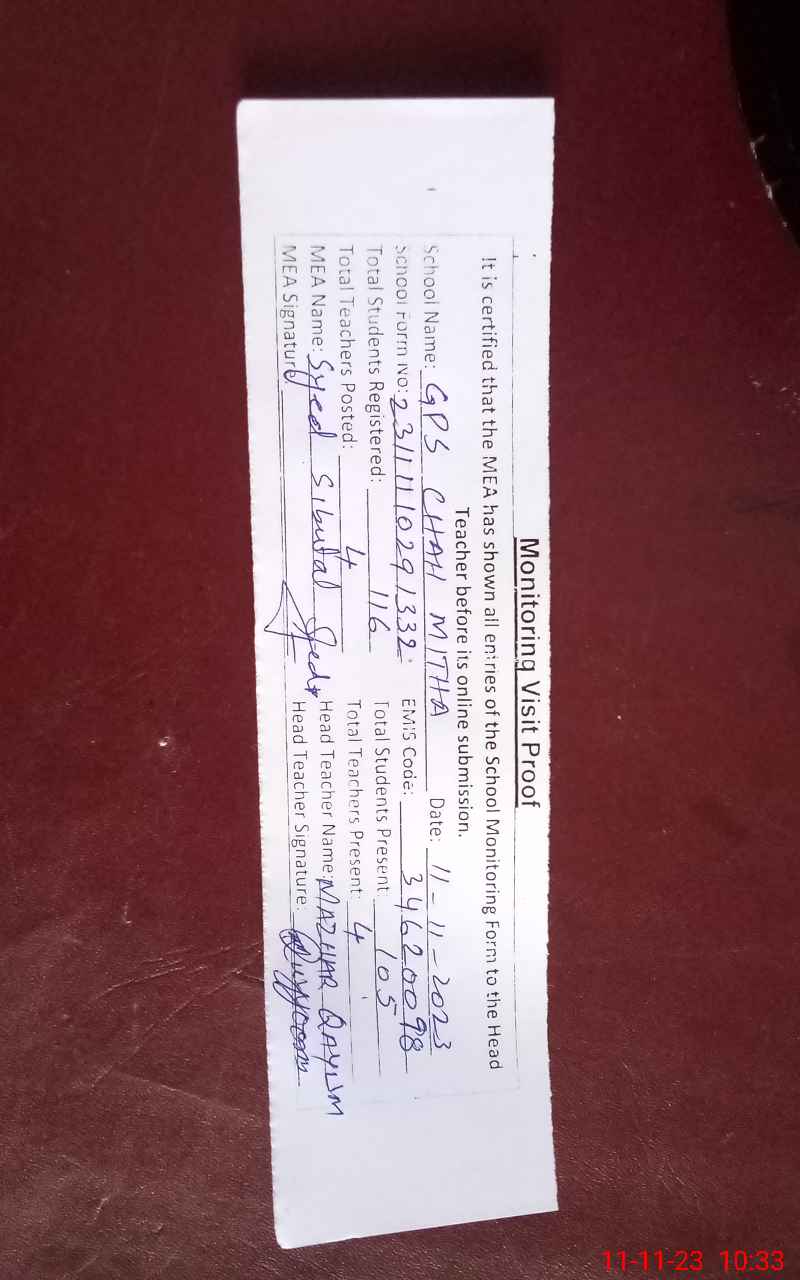 Monitoring Visit Proof
It is certified that the MEA has shown all entries of the School Monitoring Form to the Head
Teacher before its online submission.
School Name: GPS CHAH MITHA Date: 11-11-2023
School Form No: 2311110291332 EMIS Code: 34620098
Total Students Registered: 116 Total Students Present: 105
Total Teachers Posted: 4 Total Teachers Present: 4
MEA Name: Syed Head Teacher Name: MAZHAR QAYUM
MEA Signature Head Teacher Signature:
11-11-23 10:33